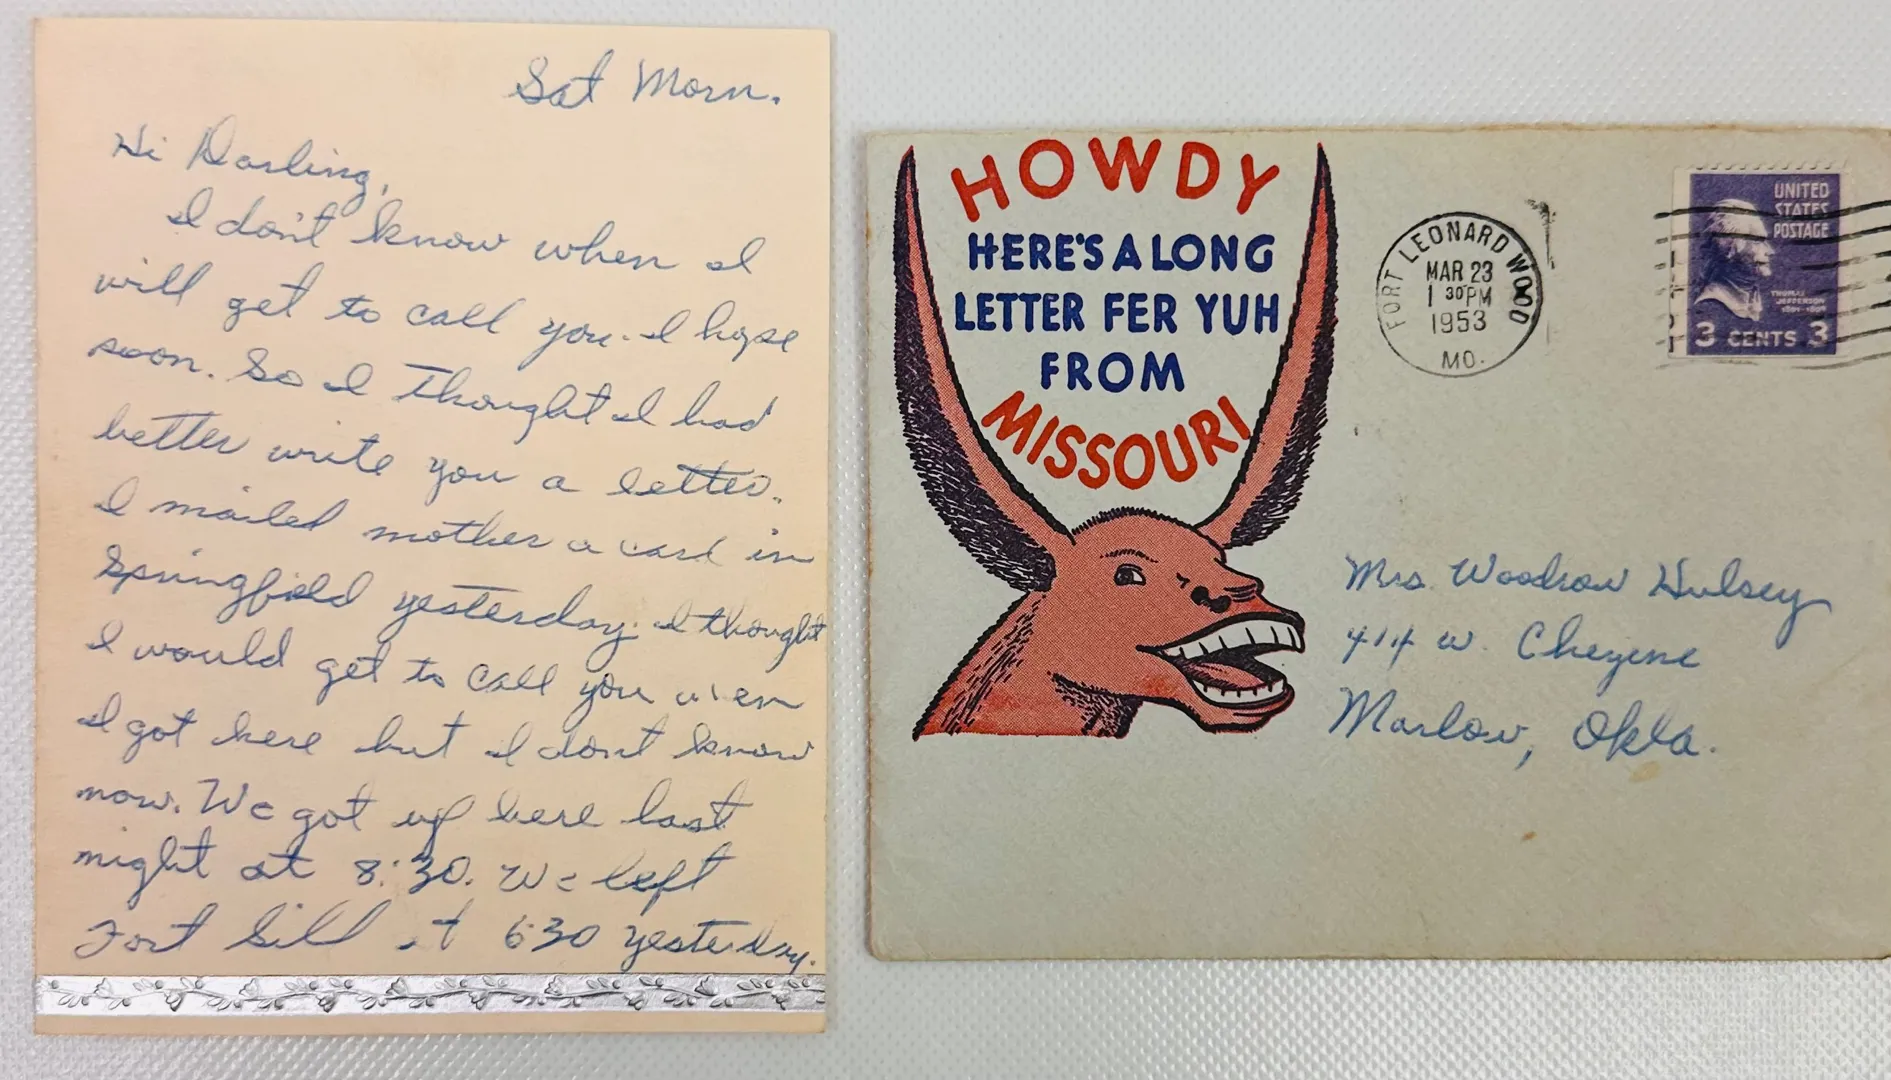 Sat Morn.
Hi Darling,
I don't know when I
will get to call you. I hope
soon. So I thought I had
better write you a letter.
I mailed mother a card in
Springfield yesterday. I thought
I would get to call you when
I got here but I don't know
now. We got up here last
night at 8:30. We left
Fort Sill at 6:30 yesterday.
HOWDY
HERE'S A LONG
LETTER FER YUH
FROM
MISSOURI
FORT LEONARD WOOD
MAR 23
1 30 PM
1953
MO.
UNITED
STATES
POSTAGE
THOMAS
JEFFERSON
1801-1809
3 CENTS 3
Mrs. Woodrow Hulsey
414 W. Cheyene
Marlow, Okla.